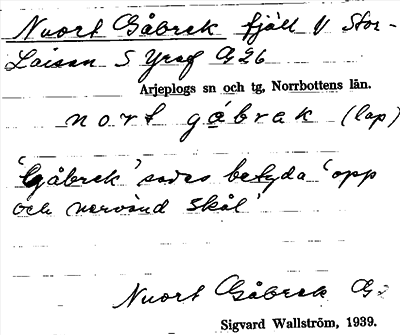 Nuort Gåbrek fjäll V Stor-
Laisan S Yraf G26
Arjeplogs sn och tg, Norrbottens län.
nort gåbrak (lap)
'Gåbrek' sades betyda 'opp
och nervänd skål'
Nuort Gåbrek G2
Sigvard Wallström, 1939.